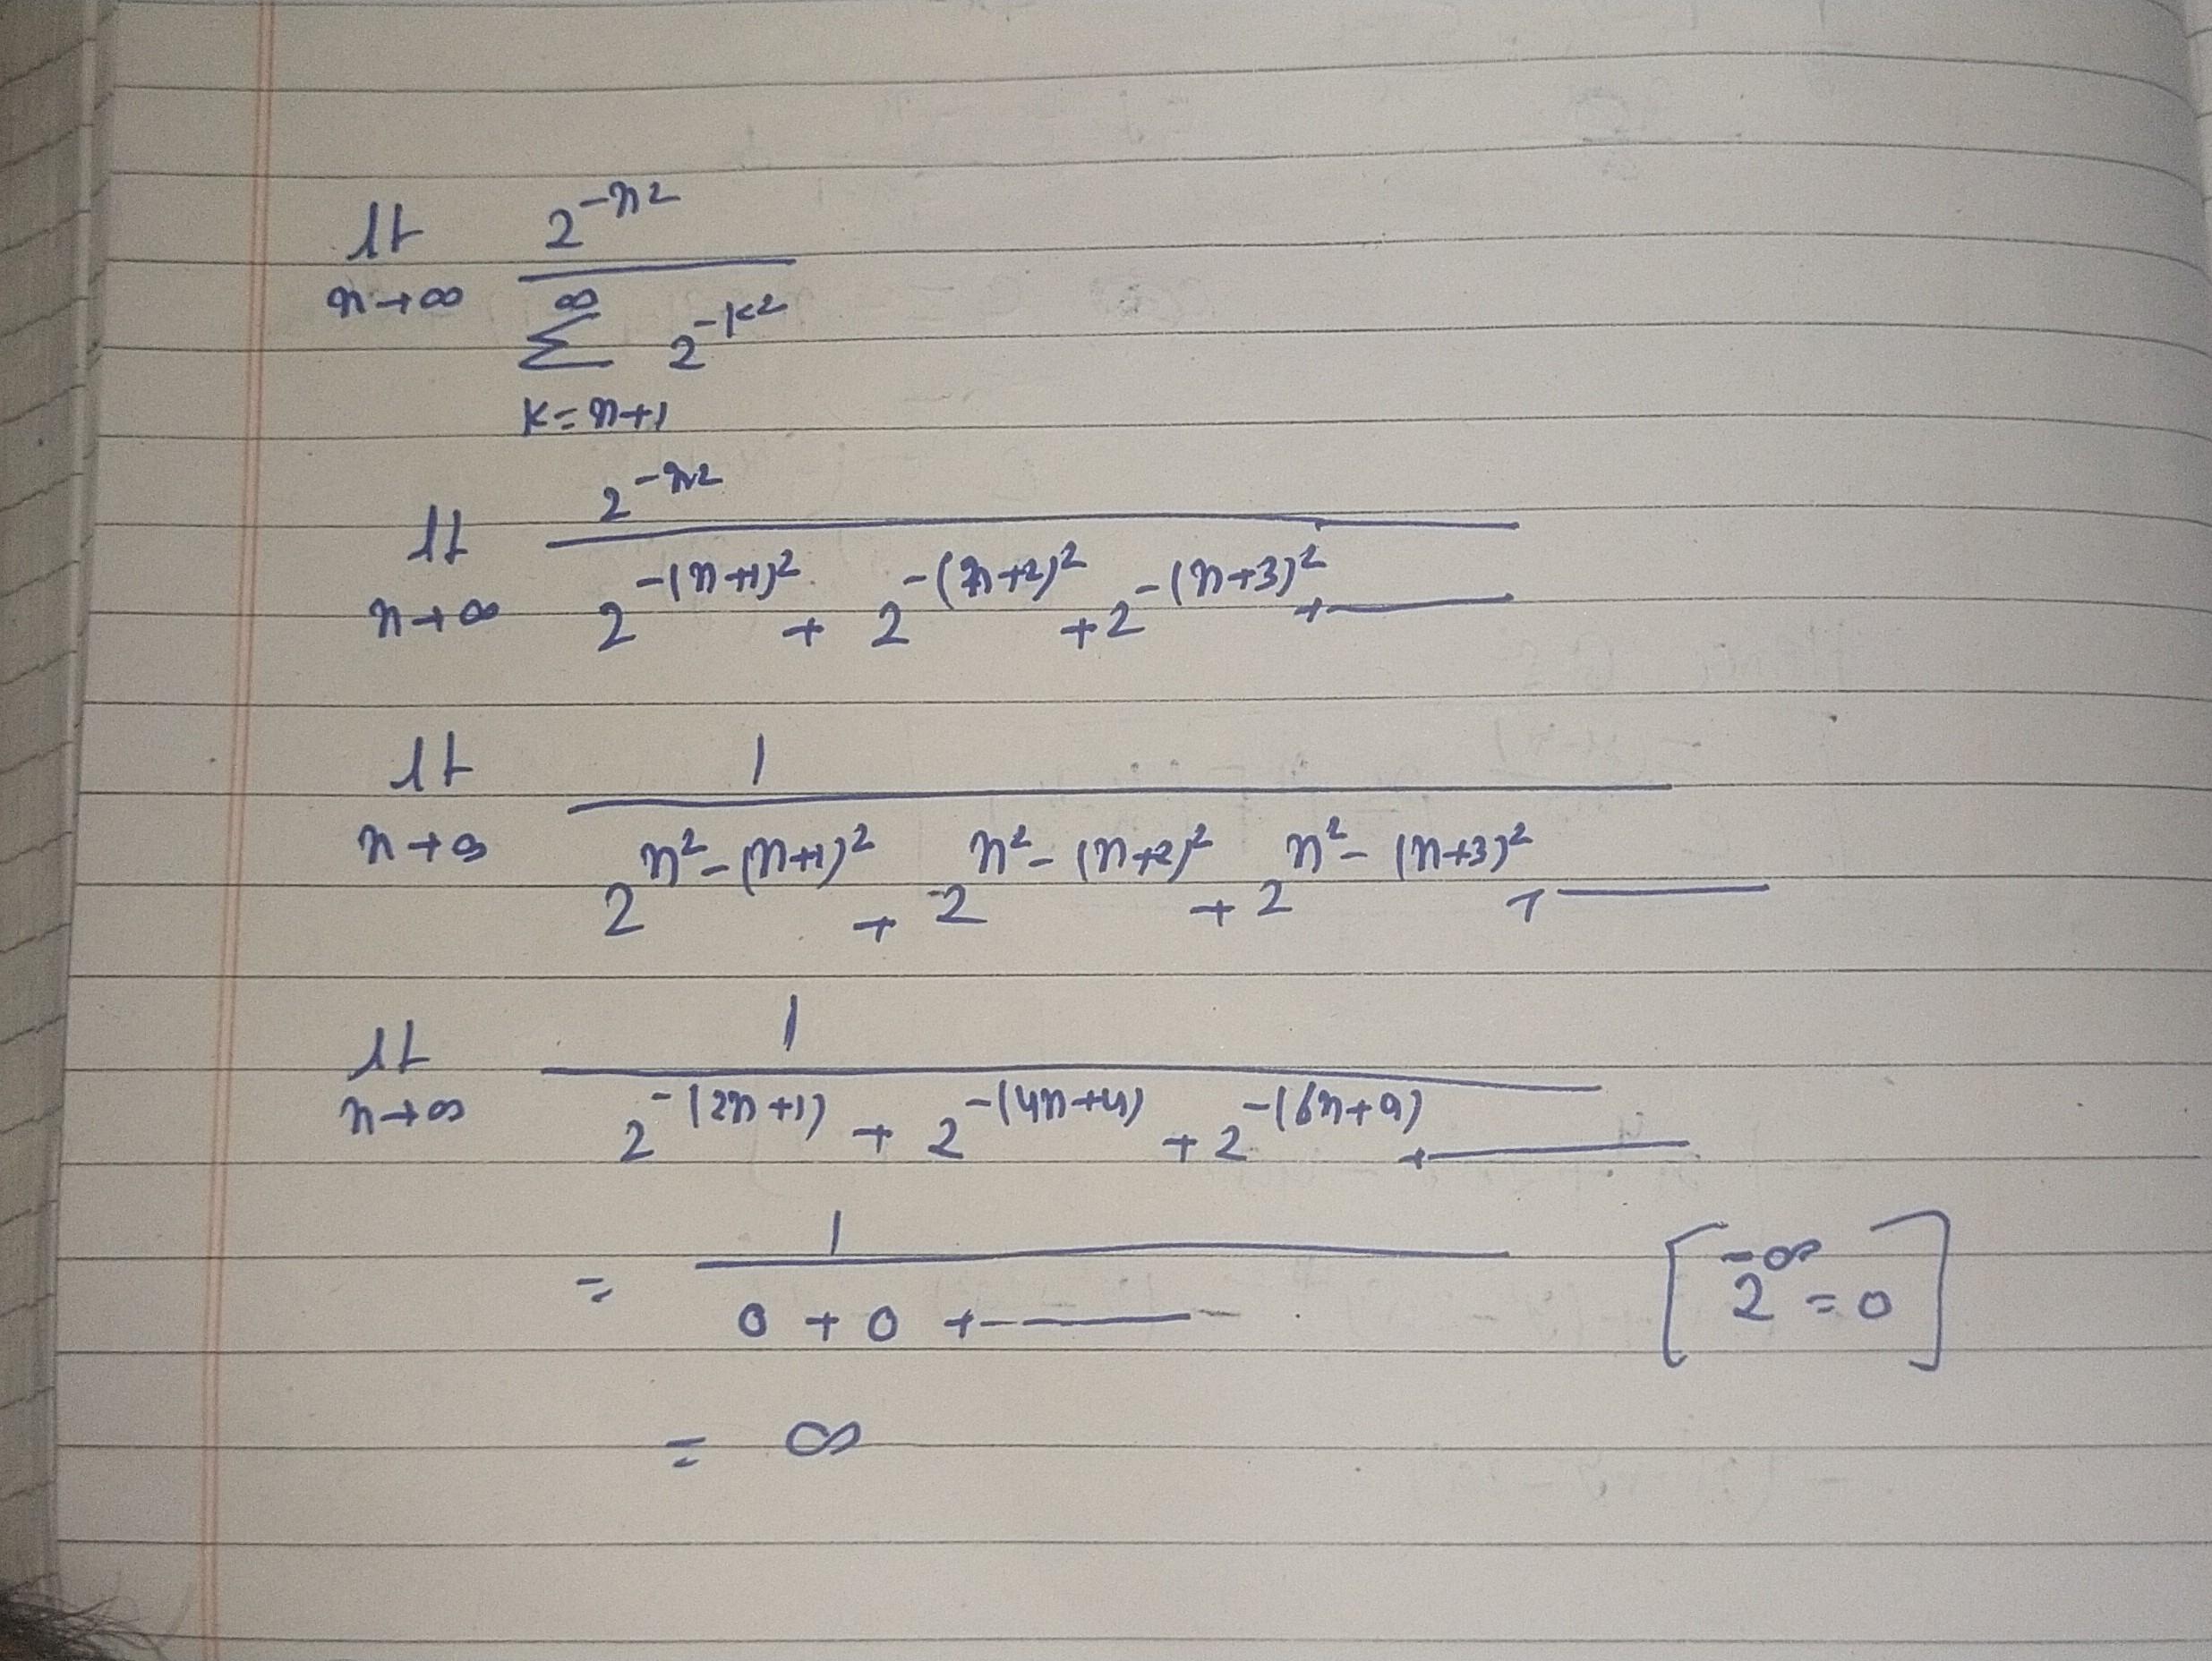 lt 2^{-n^2}
n→∞ ∞
∑ 2^{-k^2}
k=n+1
lt 2^{-n^2}
n→∞ 2^{-(n+1)^2} + 2^{-(n+2)^2} + 2^{-(n+3)^2} + ———
lt 1
n→∞ 2^{n^2-(n+1)^2} + 2^{n^2-(n+2)^2} + 2^{n^2-(n+3)^2} + ———
lt 1
n→∞ 2^{-(2n+1)} + 2^{-(4n+4)} + 2^{-(6n+9)} + ———
= 1 / 0 + 0 + ——— [2^{-∞} = 0]
= ∞